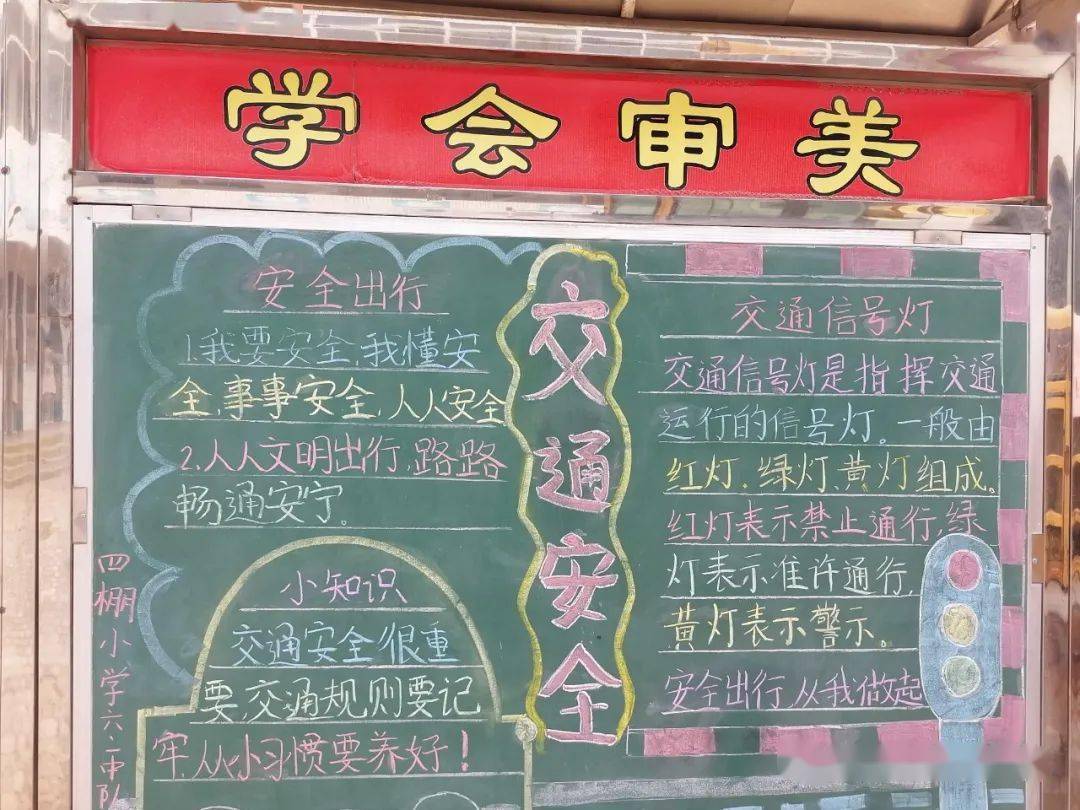 学会审美
安全出行
1.我要安全,我懂安
全,事事安全,人人安全
2.人人文明出行,路路
畅通安宁。
小知识
交通安全很重
要,交通规则要记
牢,从小习惯要养好！
四棚小学六二中队
交通安全
交通信号灯
交通信号灯是指挥交通
运行的信号灯。一般由
红灯、绿灯、黄灯组成。
红灯表示禁止通行,绿
灯表示准许通行,
黄灯表示警示。
安全出行,从我做起